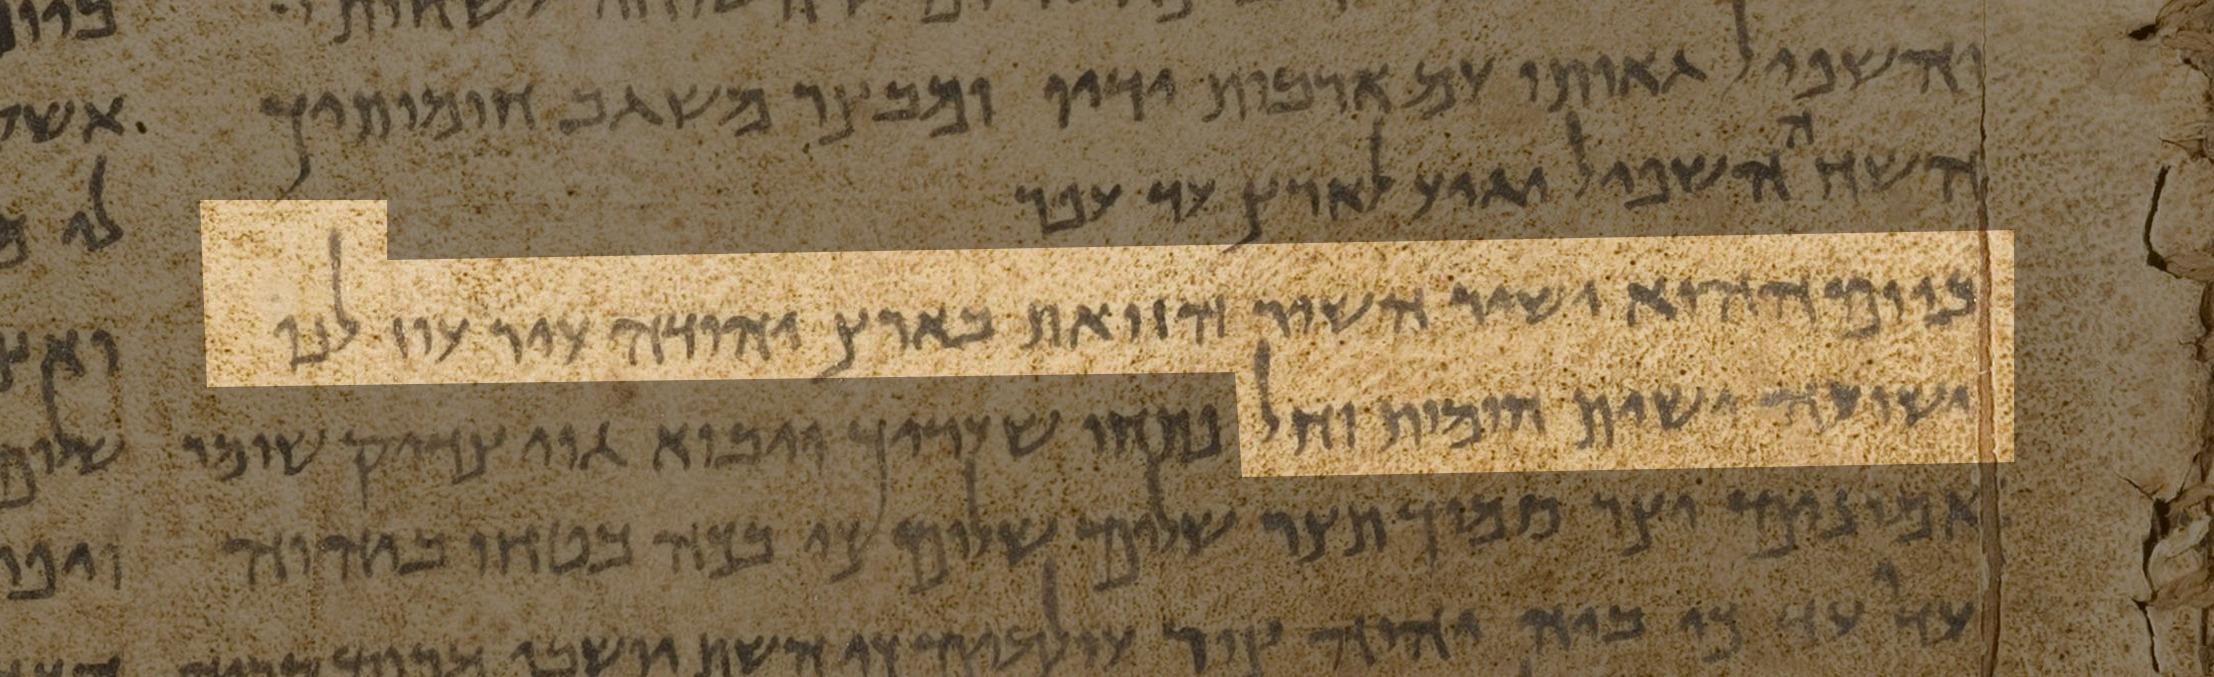 והשפיל גאותו עם ארבות ידיו ומבצר משגב חומותיך
השחה השפיל יגיע לארץ עד עפר
ביום ההוא ישיר השיר הזואת בארץ יהודה עיר עוז לנו
ישועה ישית חומות וחל פתחו שעריך ויבוא גוי צדיק שומר
אמונים יצר סמוך תצר שלום שלום כי בכה בטחו ביהוה
עדי עד כי ביה יהוה צור עולמים כי השח יושבי מרום קריה